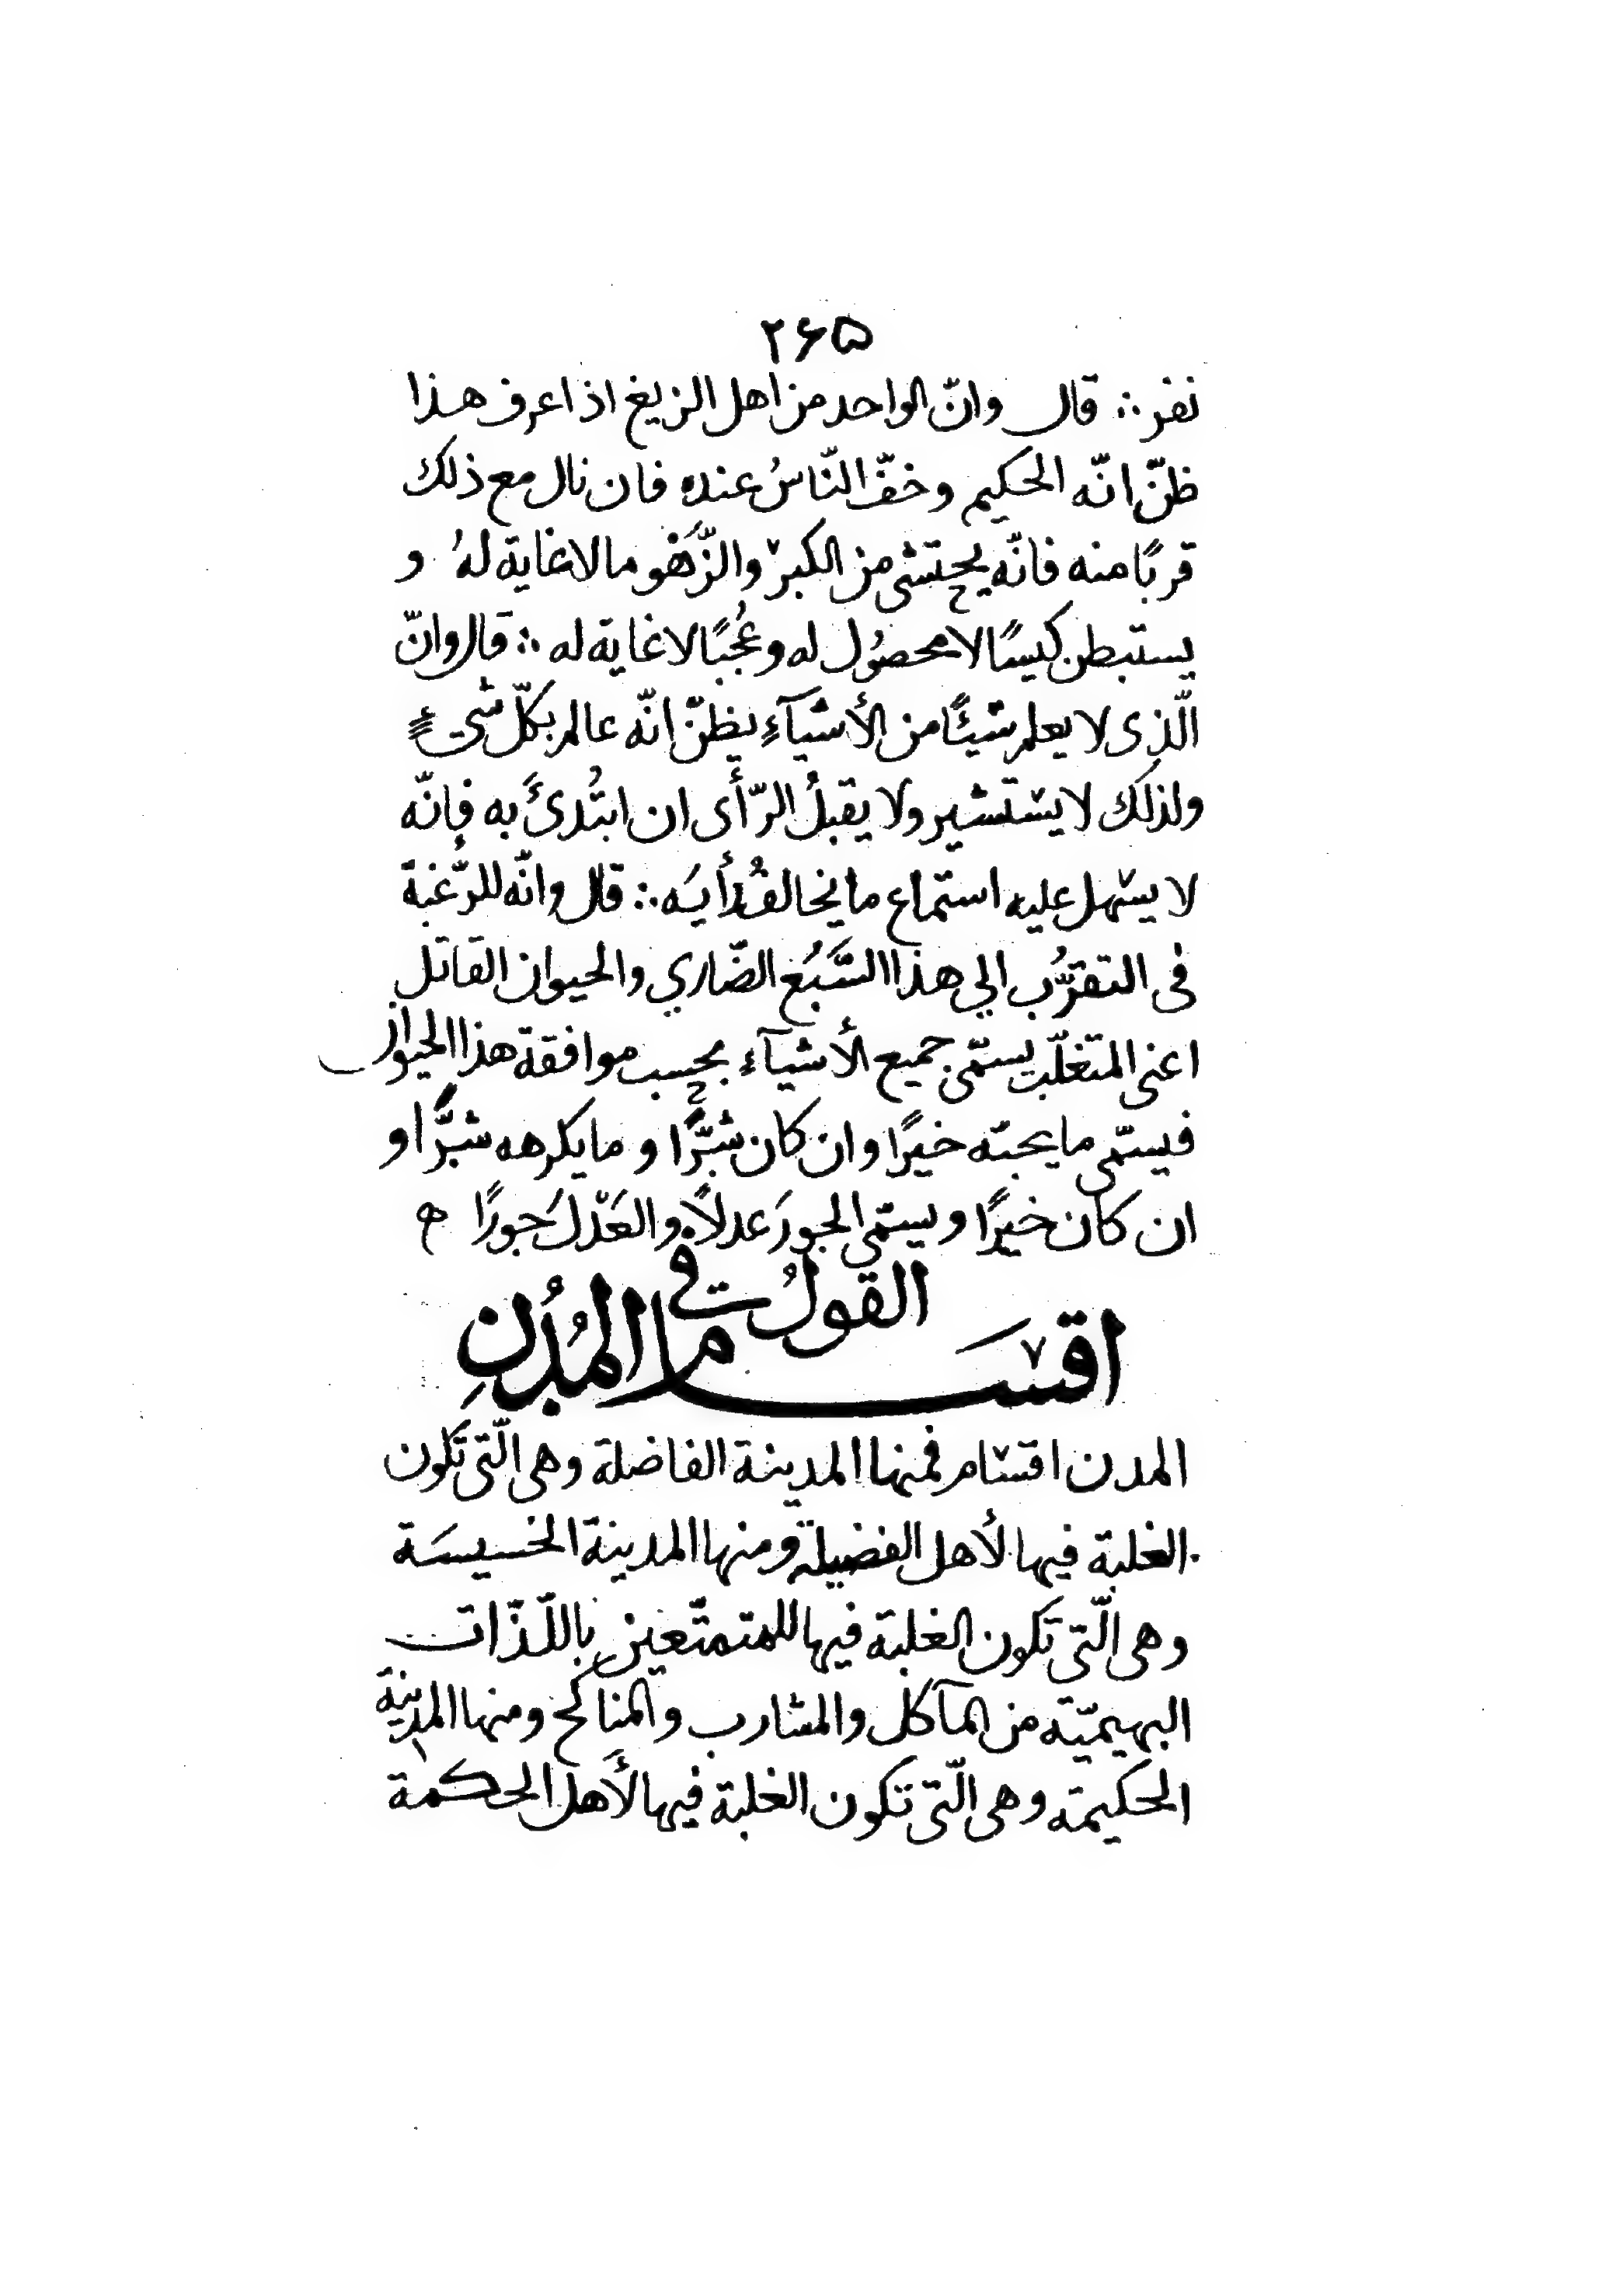 ۲۶۵
نفر ∴ قال وانّ الواحد من اهل الزيغ اذا عرف هذا
ظنّ انّه الحكيم وخفّ النّاسُ عنده فان نال مع ذلك
قربًا منه فانّه يحتشى من الكبر والزَّهْو ما لا غاية لهُ و
يستبطن كيسًا لا محصُول له وعُجْبًا لا غاية له ∴ قال وانّ
الّذى لا يعلم شيئًا من الأشيآءِ يظنّ انّه عالم بكلّ شىءٍ
ولذلك لا يستشير ولا يقبلُ الرّأى ان ابتُدئَ به فإنّه
لا يسهل عليه استماع ما يخالفُ رأيَه ∴ قال وانّه للرّغبة
فى التقرُّب الي هذا السَّبُع الضّاري والحيوان القاتل
اعنى المتغلّب يسمّى جميع الأشيآءِ بحسب موافقة هذا الحيوان
فيسمّى ما يحبّه خيرًا وان كان شرًّا و ما يكرهه شرًّا و
ان كان خيرًا و يسمّى الجورَ عدلاً والعَدْلَ جورًا ه
القولُ فى
اقسَام المُدُنِ
المدن اقسام فمنها المدينة الفاضلة وهى الّتى تكون
الغلبة فيها لأهل الفضيلة ومنها المدينة الخسيسَة
وهى الّتى تكون الغلبة فيها للمتمتّعين باللّذّات
البهيميّة من المآكل والمشارب والمناكح ومنها المدينة
الحكيمة وهى الّتى تكون الغلبة فيها لأهل الحكمة